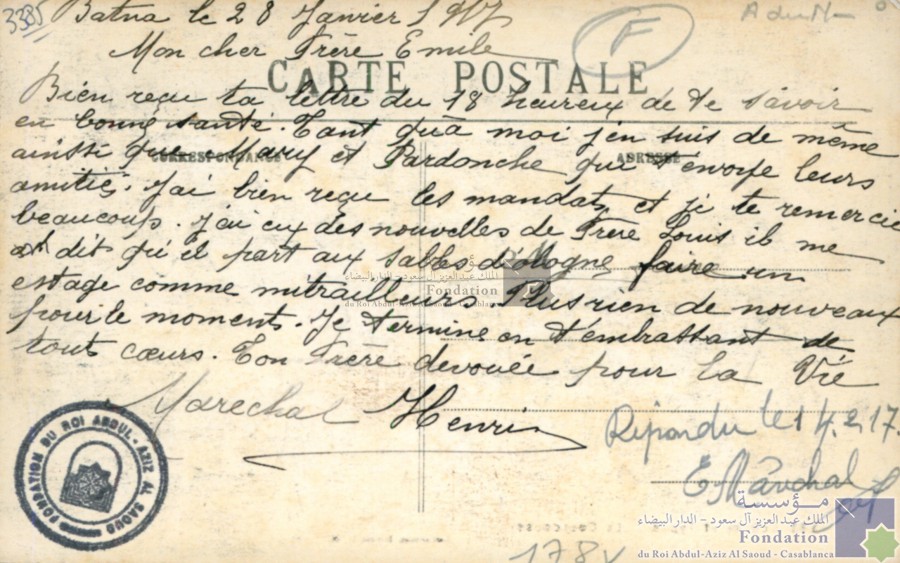 3385
Batna le 28 Janvier 1917
A du M
F
Mon cher Frère Emile
CARTE POSTALE
Bien reçu ta lettre du 18 heureux de te savoir
en bonne santé. Tant qu'à moi j'en suis de même
CORRESPONDANCE ADRESSE
ainssi que Mary et Pardonche que t'envoye leurs
amitiés. J'ai bien reçu les mandatz et je te remercie
beaucoup. j'ai eux des nouvelles de Frère Louis il me
dit qu'il part aux Salbes d'ologne faire un
estage comme mitrailleurs. Plus rien de nouveaux
pour le moment. Je termine en t'embrattant de
tout cœurs. Ton Frère devouée pour la Vie
Marechal Henri
Répondu le 14.2.17.
E Maréchal
178
FONDATION DU ROI ABDUL-AZIZ AL SAOUD
مؤسسة
الملك عبد العزيز آل سعود - الدار البيضاء
Fondation
du Roi Abdul-Aziz Al Saoud - Casablanca
الملك عبد العزيز آل سعود - الدار البيضاء
Fondation
du Roi Abdul-Aziz Al Saoud - Casablanca